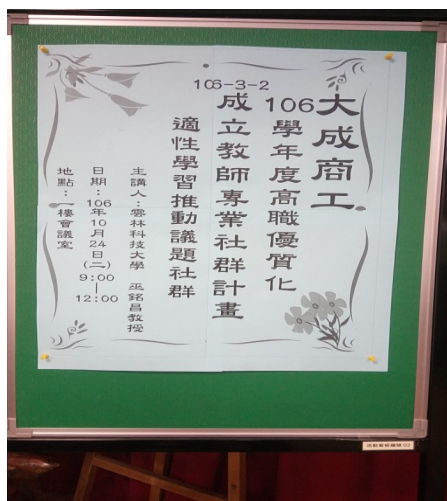 大成商工
106學年度高職優質化
106-3-2
成立教師專業社群計畫
適性學習推動議題社群
主講人：雲林科技大學 巫銘昌教授
日期：106年10月24日(二) 9:00｜12:00
地點：一樓會議室
活動看板編號 02